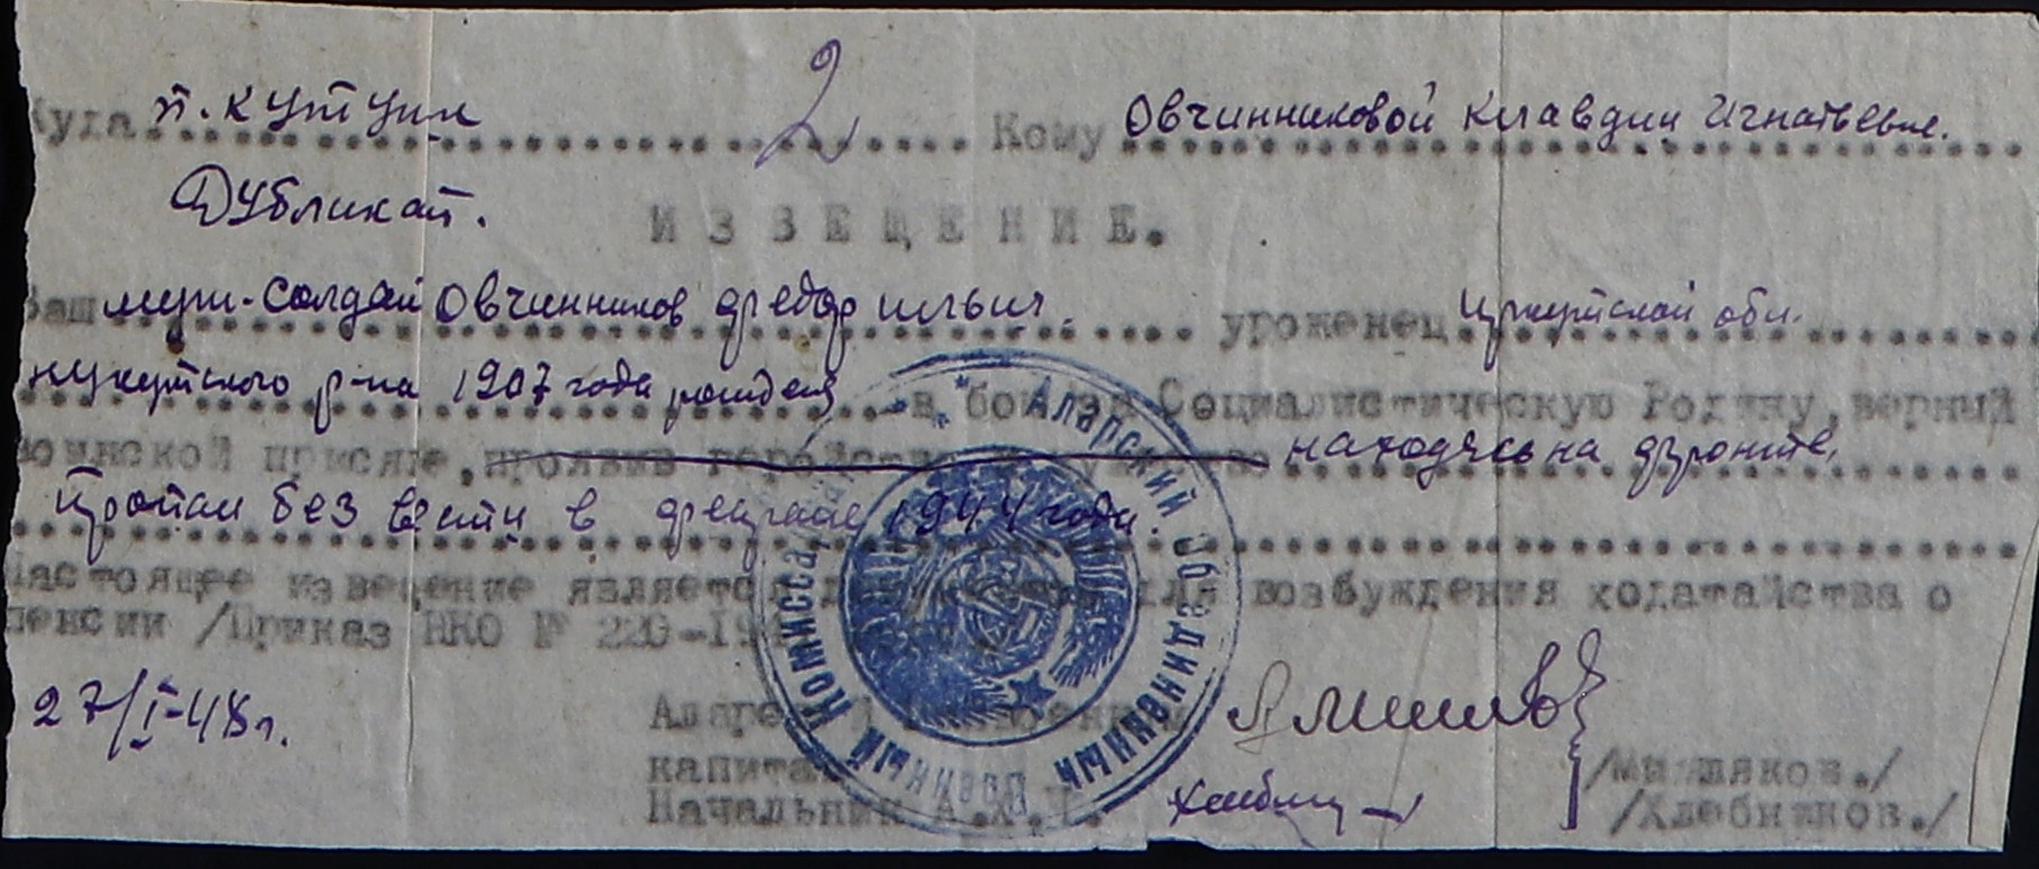 Куда п. Кутулик 2 Кому Овчинниковой Клавдии Игнатьевне.
Дубликат.
ИЗВЕЩЕНИЕ.
Ваш муж-солдат Овчинников Федор Ильич уроженец Иркутской обл.
Нукутского р-на 1907 года рождения в бою за Социалистическую Родину, верный
воинской присяге, проявив геройство и мужество находясь на фронте,
пропал без вести в феврале 1944 года.
Настоящее извещение является документом для возбуждения ходатайства о
пенсии /Приказ НКО №
27/I-48 г.
Аларский
капитан /Мишляков./
Начальник А.Х.Ч. /Хлебников./
Аларский Объединенный Военный Комиссариат